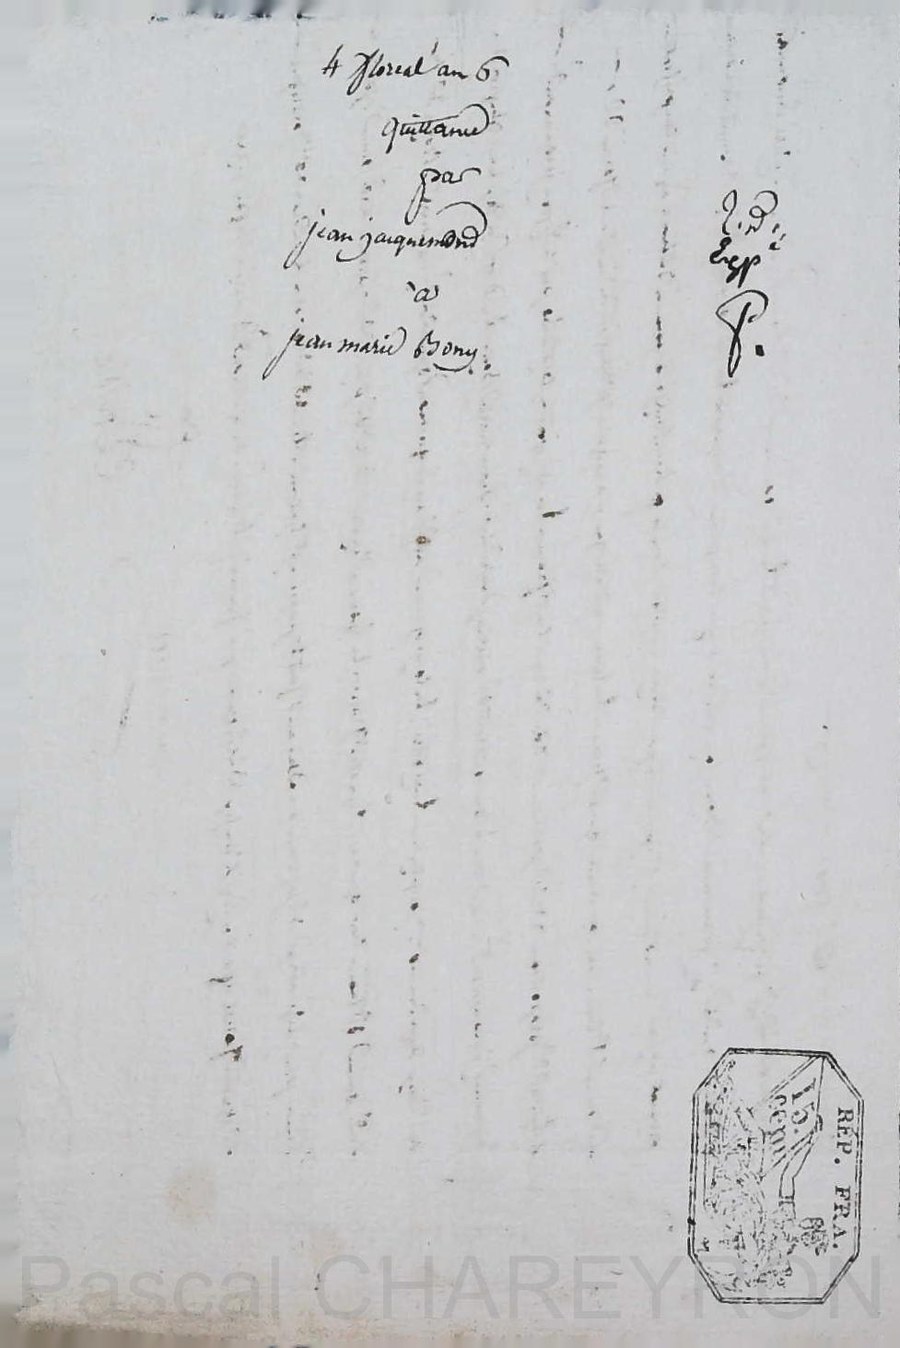 4 floreal an 6
quittance
par
jean jacquemond
à
jean marie Bony
R.d.
Exp.é
P.
RÉP. FRA.
15.
cent.
Pascal CHAREYRON